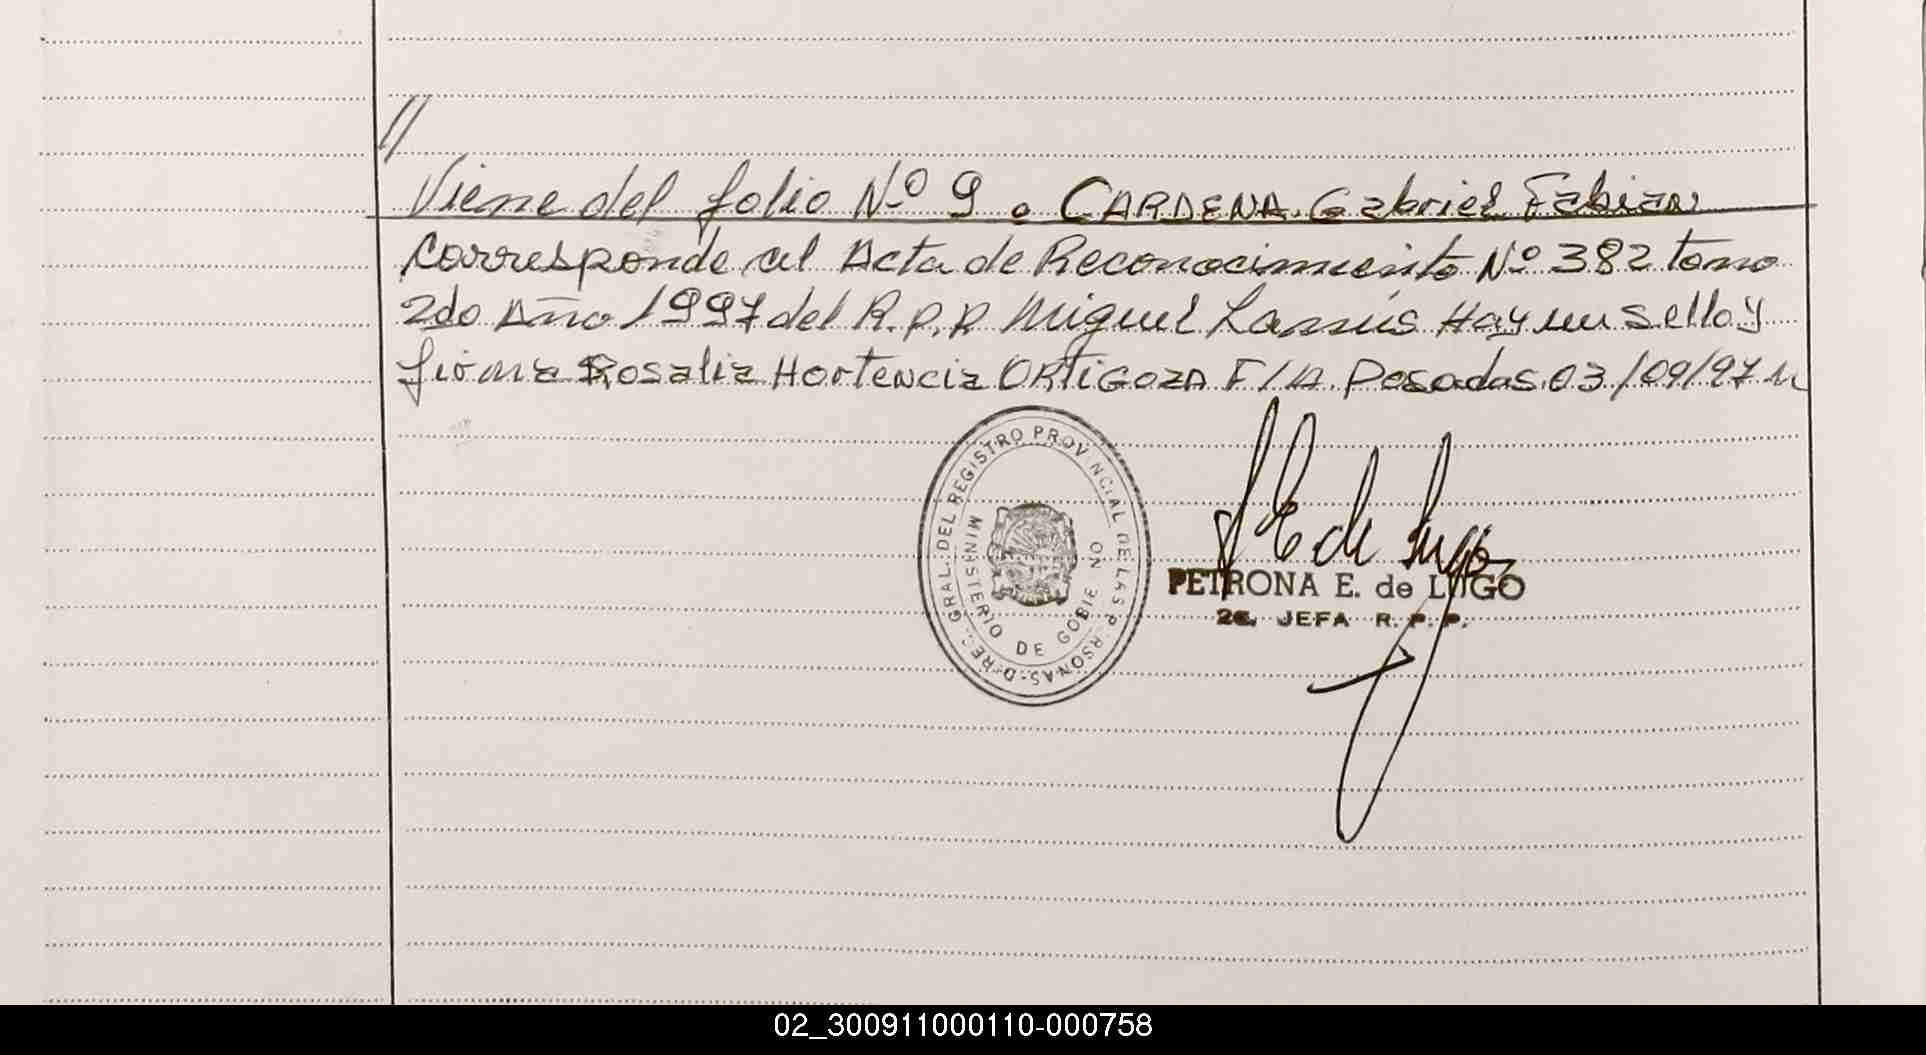 //
Viene del folio Nº 9. CARDENA Gabriel Fabian
Corresponde al Acta de Reconocimiento Nº 382 tomo
2do Año 1997 del R.P.P. Miguel Lanús Hay un Sello y
firma Rosalia Hortencia ORTIGOZA F/A. Posadas 03/09/97
DIREC. GRAL. DEL REGISTRO PROVINCIAL DE LAS PERSONAS
MINISTERIO DE GOBIERNO
PETRONA E. de LUGO
2a. JEFA R. P. P.
02_300911000110-000758